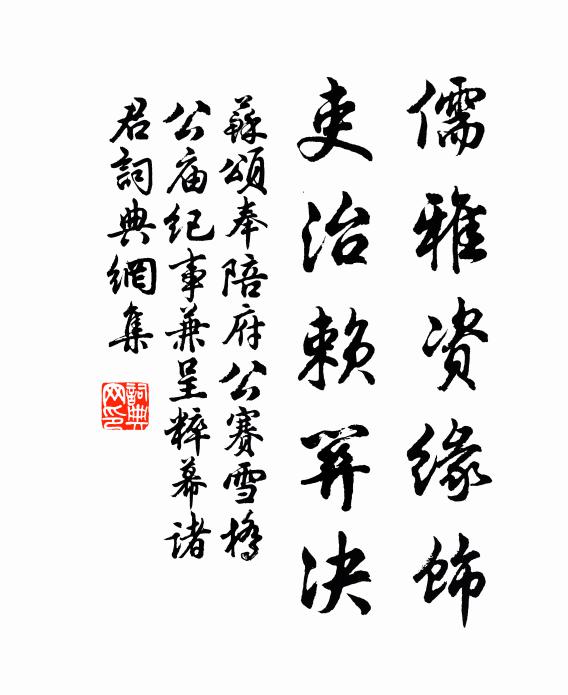 儒雅资缘饰
吏治赖羿决
蘇頌奉陪府公賽雪橋
公庙纪事兼呈粹幕诸
君詞典網集
詞典
网印